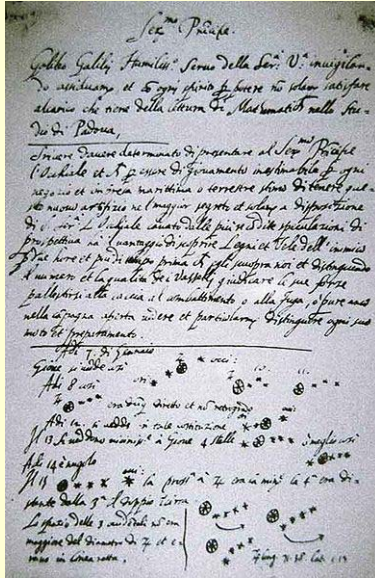 Ser.mo Principe.
Galileo Galilei Humiliss.o Servo della Ser.a V.a invigilan-
do assiduamente, et con ogni spirito per potere non solam.te satisfare
al carico che tiene della lettura di Matematiche nello Stu-
dio di Padova,
Scrivere d'avere determinato di presentare al Ser.mo Principe
l'Occhiale et per essere di giovamento inestimabile per ogni
negozio et impresa marittima o terrestre stimo di tenere que-
sto nuovo artifizio nel maggior segreto et solam. a disposizione
di S. Ser.tà L'Occhiale cavato dalle più recondite speculazioni di
prospettiva ha il vantaggio di scoprire Legni et Vele dell'inimico
per due hore et più di tempo prima ch' egli scuopra noi et distinguendo
il numero et la qualità dei Vasselli giudicare le sue forze
pallestirsi alla caccia al combattimento o alla fuga, o pure anco
nella campagna aperta vedere et particolarm. distinguere ogni suo
moto et preparamento.
Adi 7. di Gennaio
Giove si vedde così
Adi 8 così
era diretto et non retrogrado
Adi 12. si vedde in tale costituzione
Il 13 si veddono vicinissime a Giove 4 stelle meglio così
Adi 14 è nugolo
Il 15 la pross.a a ♃ era la min.e la 4.a era di-
stante dalla 3.a il doppio
Lo spazio delle 3 occidentali non era
maggiore del diametro di ♃ et e-
rano in linea retta.